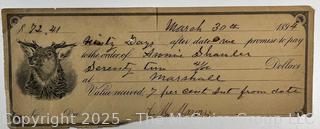 $ 72.41 March 30th 1894
Ninety Days after date we promise to pay
to the order of Annie Shauler
Seventy two 41/100 Dollars
at Marshall
Value received 7 per cent Int from date
Copyright 2025